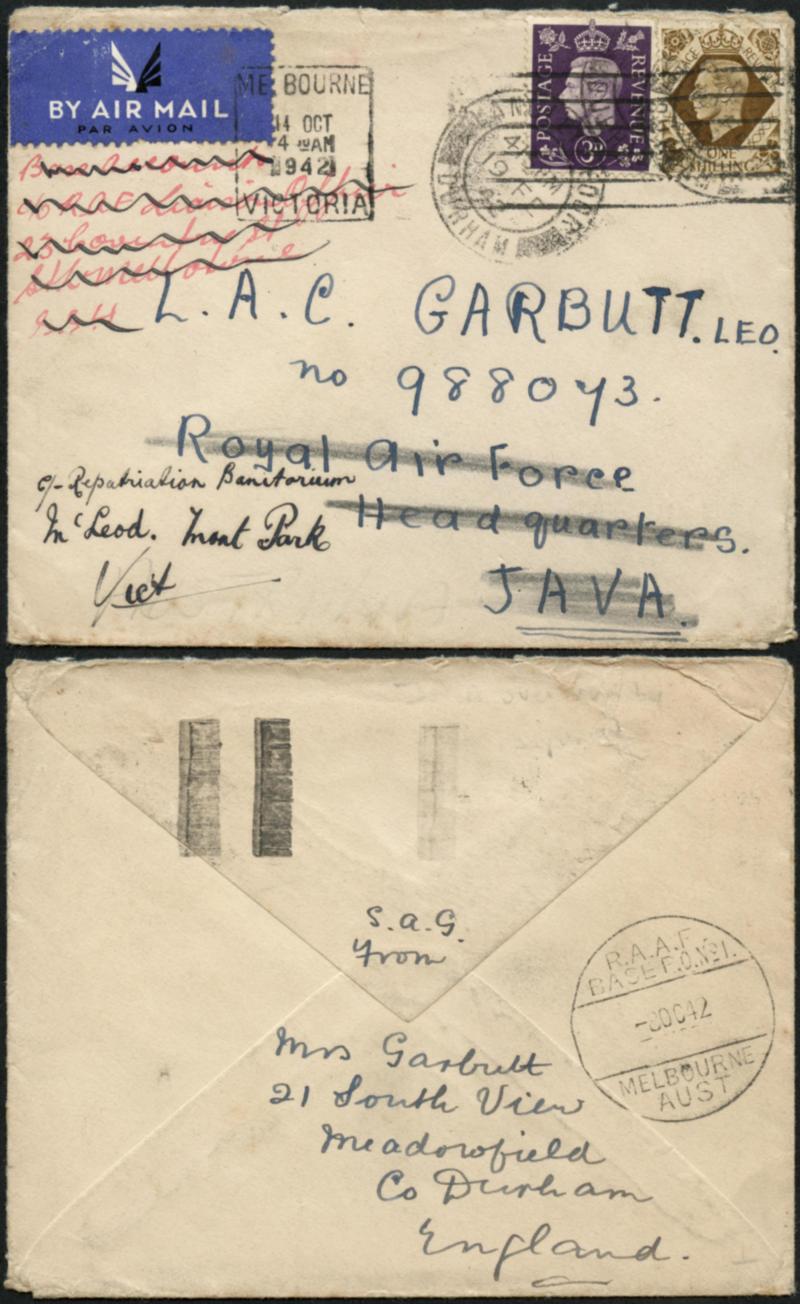 BY AIR MAIL
PAR AVION
MELBOURNE
14 OCT
1942
VICTORIA
DURHAM
POSTAGE REVENUE
3D
ONE
SHILLING
23
L. A. C. GARBUTT. LEO.
no 988043.
Royal Air Force
Headquarters.
JAVA.
c/- Repatriation Sanitorium
McLeod. Mont Park
Vict
S.A.G.
From
Mrs Garbutt
21 South View
Meadowfield
Co Durham
England.
R.A.A.F.
BASE P.O. No 1.
-8OC42
MELBOURNE
AUST